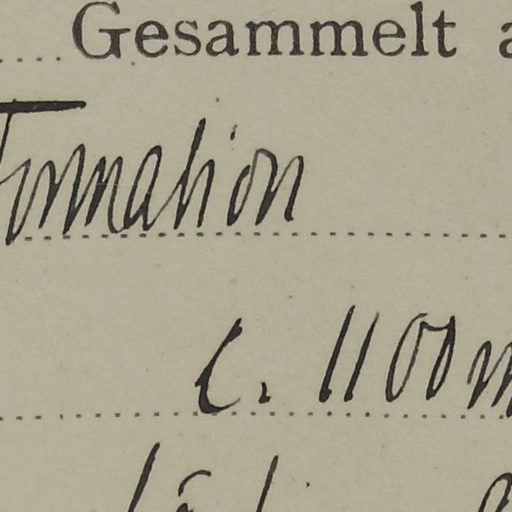 Gesammelt
Formation
c. 1100 m